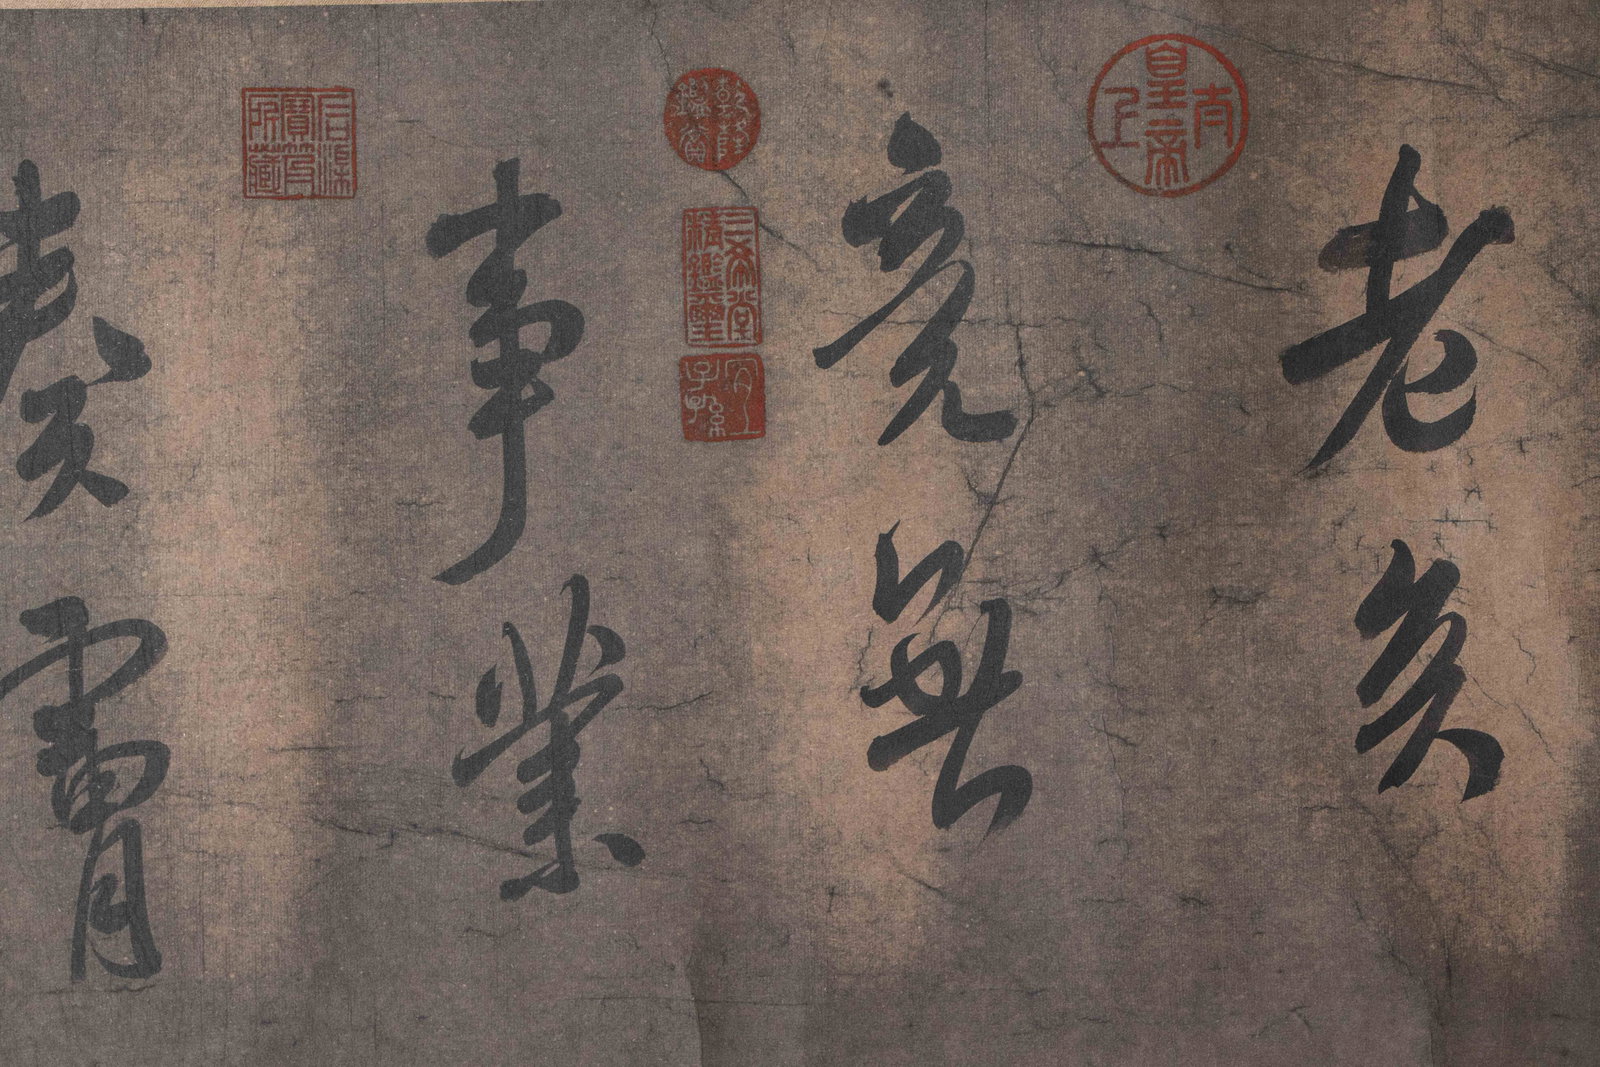 老矣
竟無
事業
太上皇帝
乾隆鑑賞
三希堂精鑑璽
宜子孫
石渠寶笈所藏